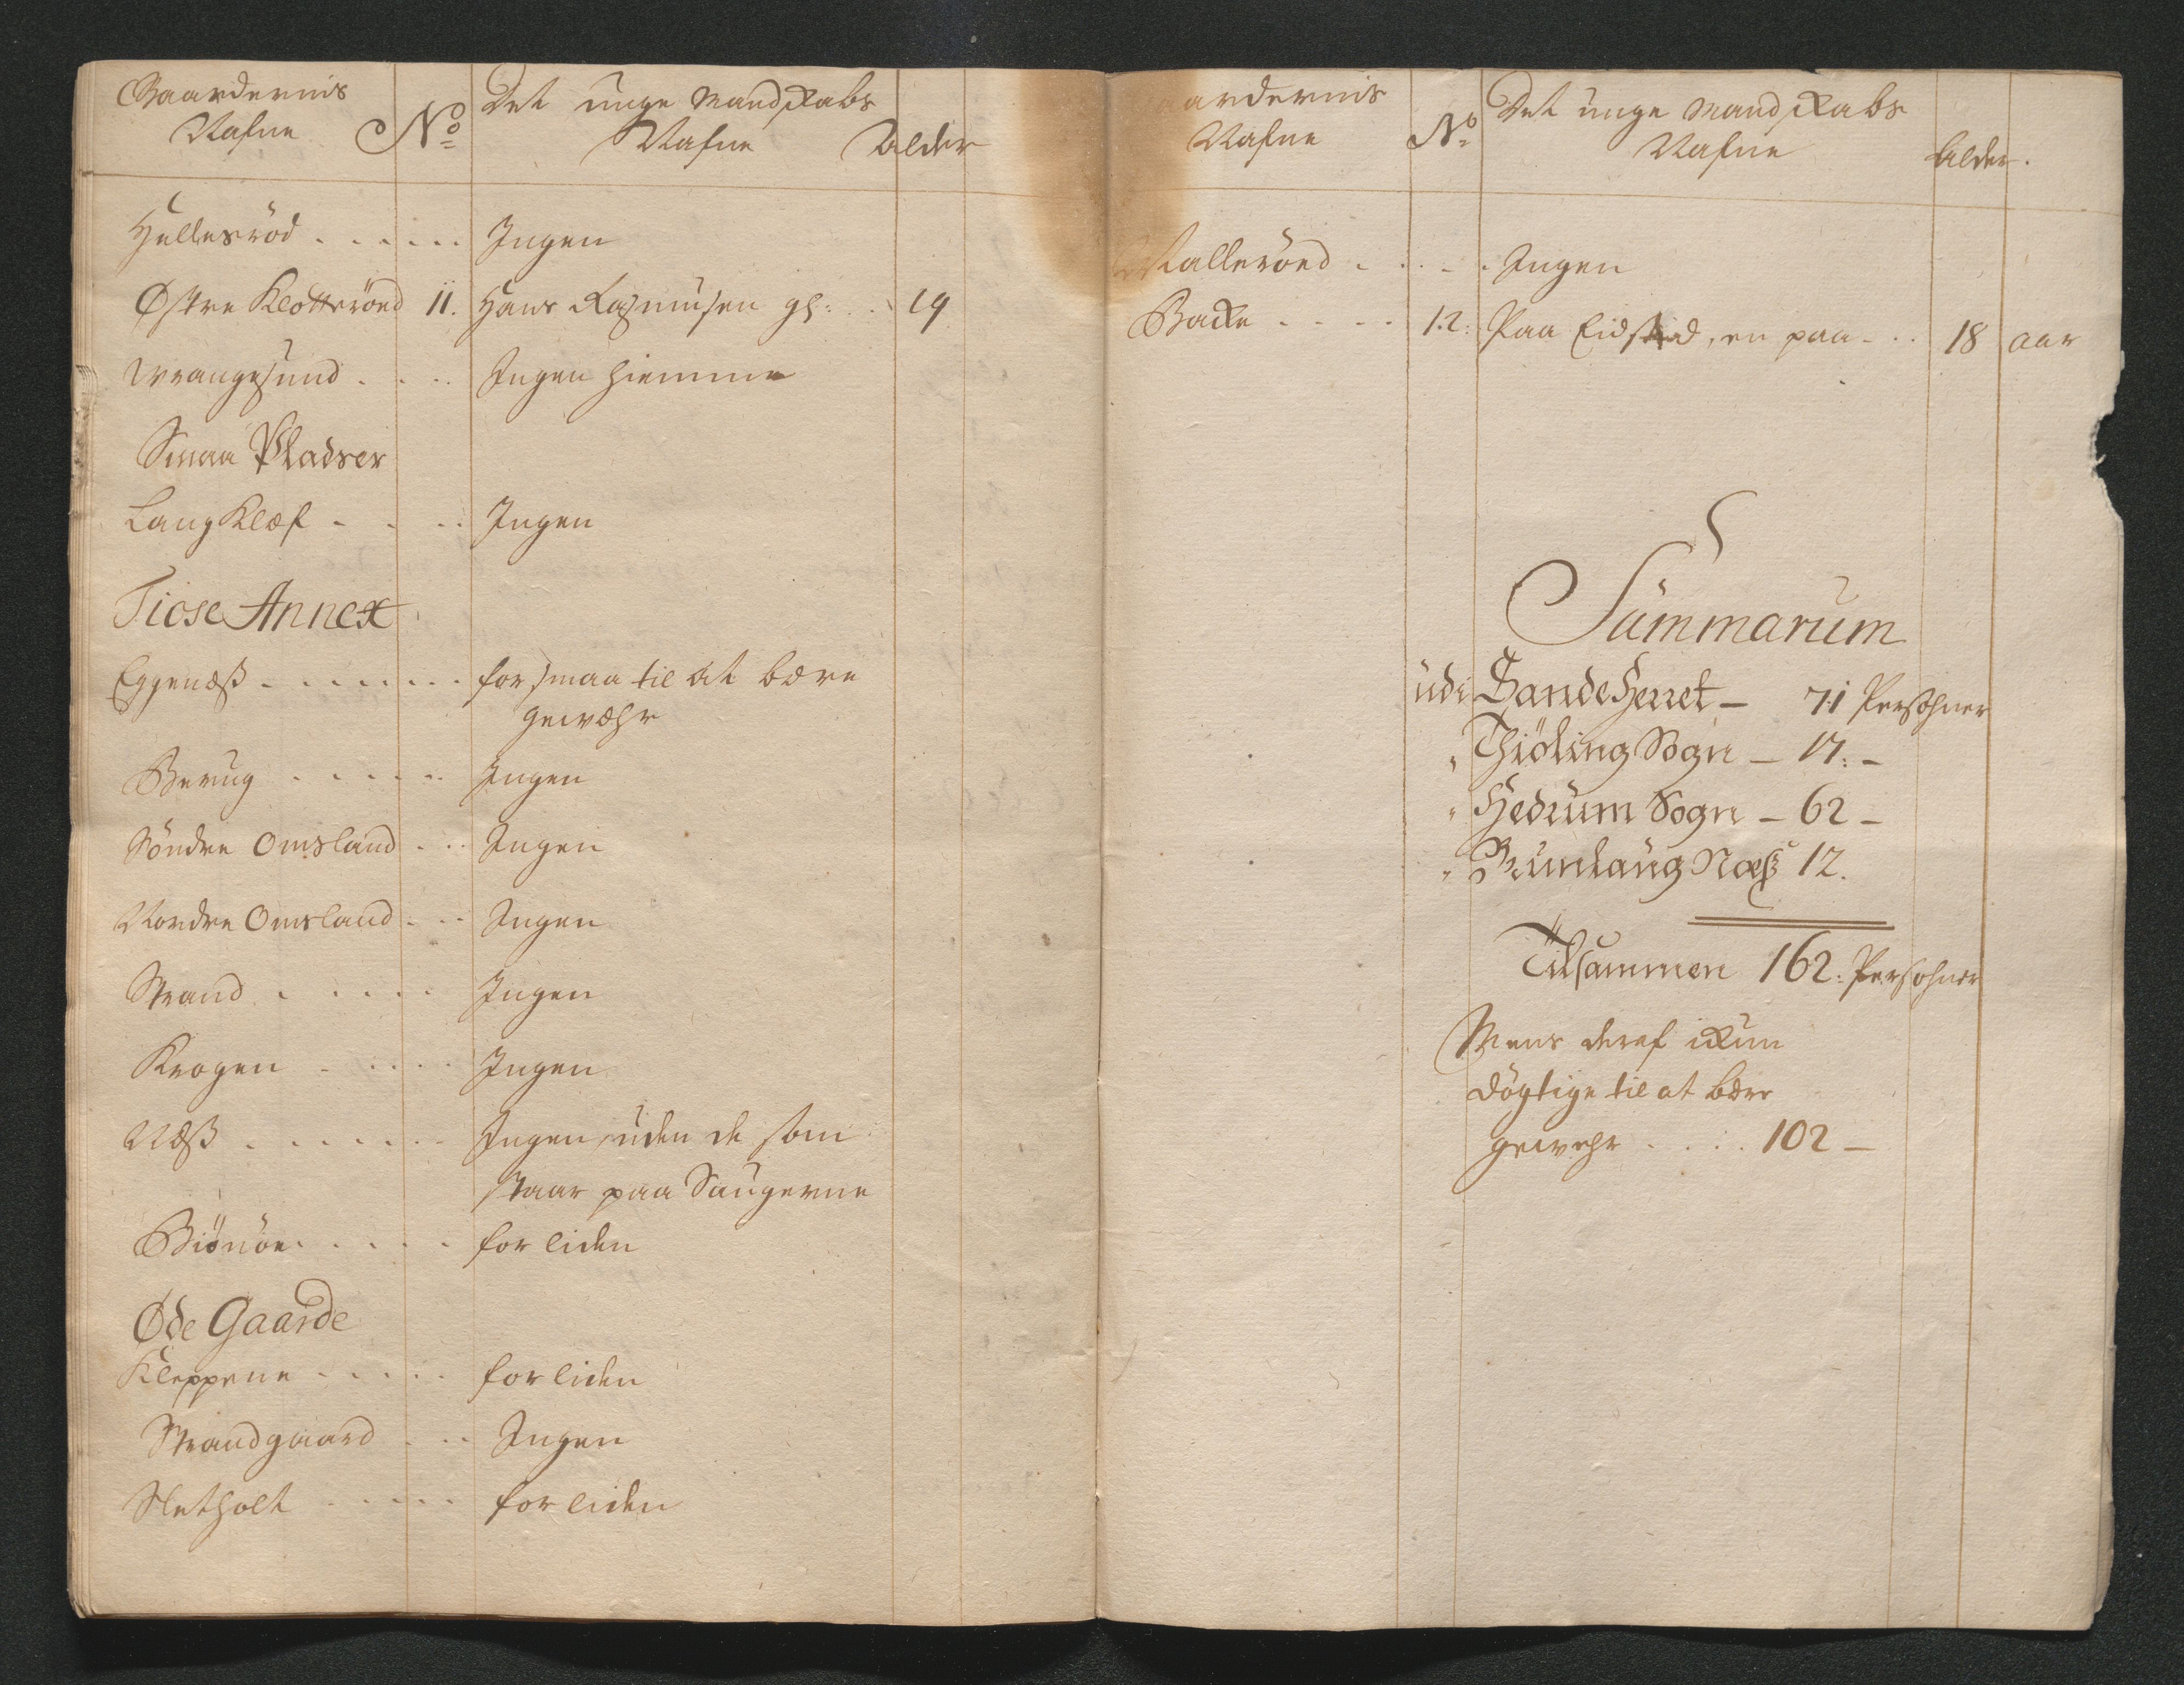 Gaardernis
Nafne No Det unge Mandskabs
Nafne Alder
Hellesröd . . . . . . Ingen
Østre Klotteröed 11. Hans Rasmusen gl: . . 19
Wrangesund . . . . Ingen hiemme
Smaa Pladser
Langklef - - - - Ingen
Tiose Annex
Eggenæß - . . . . . . for smaa til at bære
gewæhr
Berug . . . . . . Ingen
Söndre Omsland . . . Ingen
Nordre Omsland . . . Ingen
Strand . . . . . Ingen
Krogen . . . . . Ingen
Næß . . . . . . Ingen, uden de som
staar paa Saugerne
Biönöe . . . . . for liden
Øde Gaarde
Kleppene . . . . . for liden
Strandgaard . . . Ingen
Sletholt . . . . . for liden
aardernis
Nafne No Det unge Mandskabs
Nafne Alder.
Valleröed . . . . Ingen
Backe . . . . 12: Paa Eidsted, en paa - . . 18 aar
Summarum
udi Sande Herret - 71 Persohner
" Thiöling Sogn - 17: -
" Hedrum Sogn - 62 -
" Brunlaug Næß 12.
Tilsammen 162: Persohner
Mens deraf ickun
dögtige til at bære
gewehr . . . . 102 -